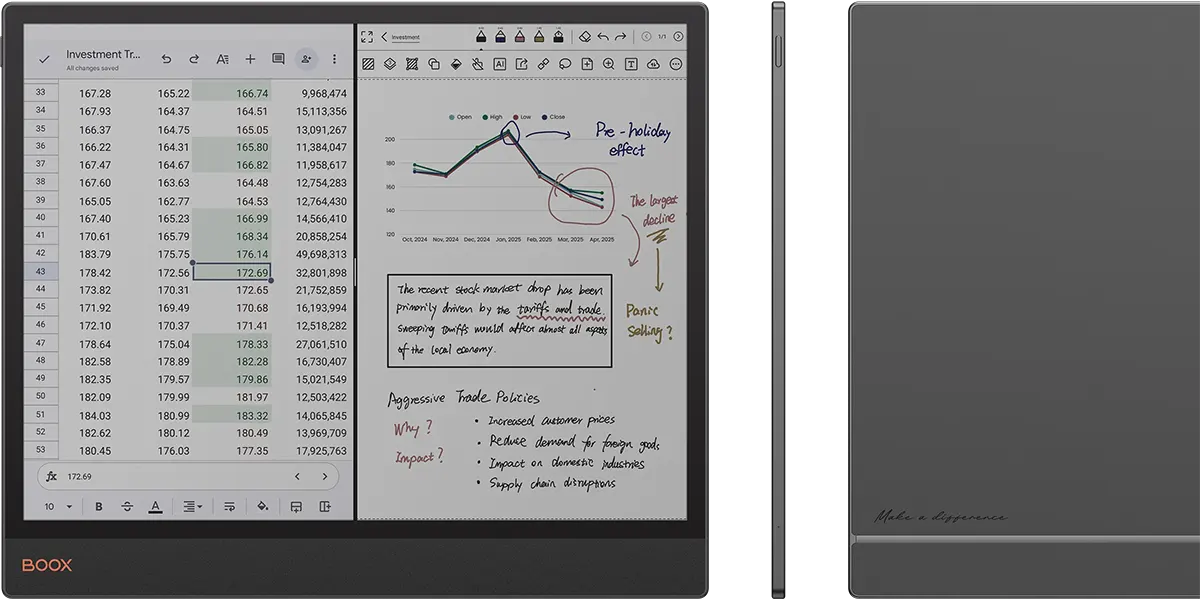 Investment Tr...
All changes saved
33 167.28 165.22 166.74 9,968,474
34 167.93 164.37 164.51 15,113,356
35 166.37 164.75 165.05 13,091,267
36 166.22 164.31 165.80 11,384,047
37 167.47 164.67 166.82 11,958,617
38 167.60 163.63 164.48 12,754,283
39 165.05 162.77 164.53 12,764,430
40 167.40 165.23 166.99 14,566,410
41 170.61 165.79 168.34 20,858,254
42 183.79 175.75 176.14 49,698,313
43 178.42 172.56 172.69 32,801,898
44 173.82 170.31 172.65 21,752,859
45 171.92 169.49 170.68 16,193,994
46 172.10 170.37 171.41 12,518,282
47 178.64 175.04 178.33 27,061,510
48 182.58 178.89 182.28 16,730,407
49 182.35 179.57 179.86 15,021,549
50 182.09 179.99 181.97 12,503,422
51 184.03 180.99 183.32 14,065,845
52 182.62 180.12 180.49 13,969,709
53 180.45 176.03 177.35 17,925,763
fx 172.69
10 B S A
Investment
1/1
AI
T
Open High Low Close
200
180
160
140
120
Oct, 2024 Nov, 2024 Dec, 2024 Jan, 2025 Feb, 2025 Mar, 2025 Apr, 2025
Pre-holiday
effect
The largest
decline
Panic
Selling?
The recent stock market drop has been
primarily driven by the tariffs and trade.
Sweeping tariffs would affect almost all aspects
of the local economy.
Aggressive Trade Policies
Why?
Impact?
• Increased customer prices
• Reduce demand for foreign goods
• Impact on domestic industries
• Supply chain disruptions
BOOX
Make a difference